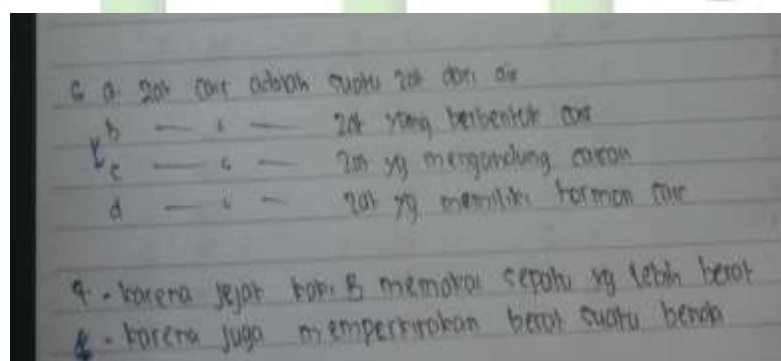 6 a. zat cair adalah suatu zat dari air
b — " — zat yang berbentuk cair
c — " — zat yg mengandung cairan
d — " — zat yg memiliki hormon cair
9. karena jejak kaki B memakai sepatu yg lebih berat
- karena juga memperkirakan berat suatu benda